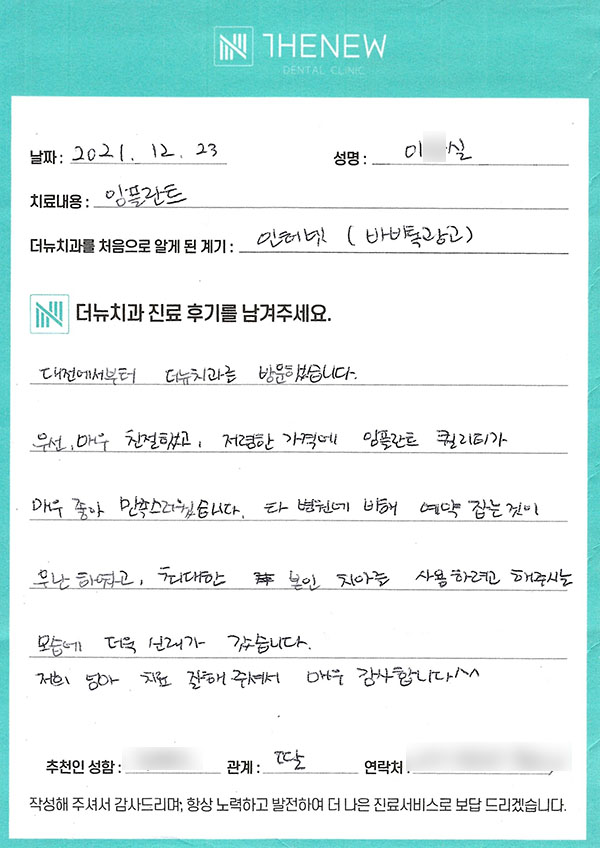 THENEW
DENTAL CLINIC
날짜 : 2021. 12. 23 성명 : 이 실
치료내용 : 임플란트
더뉴치과를 처음으로 알게 된 계기 : 인터넷 (바비톡광고)
더뉴치과 진료 후기를 남겨주세요.
대전에서부터 더뉴치과를 방문했습니다.
우선, 매우 친절했고, 저렴한 가격에 임플란트 퀄리티가
매우 좋아 만족스러웠습니다. 타 병원에 비해 예약 잡는것이
무난 하였고, 최대한 본인 치아를 사용하려고 해주시는
모습에 더욱 신뢰가 갔습니다.
저희 엄마 치료 잘해 주셔서 매우 감사합니다^^
추천인 성함 : 관계 : 딸 연락처 :
작성해 주셔서 감사드리며, 항상 노력하고 발전하여 더 나은 진료서비스로 보답 드리겠습니다.